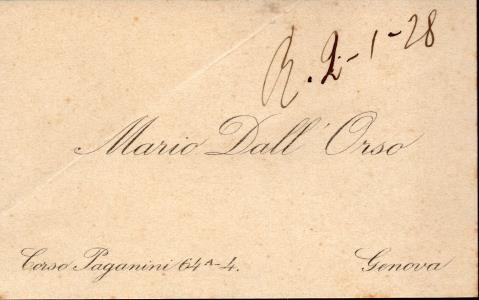 R. 2-1-28
Mario Dall'Orso
Corso Paganini 64A-4.
Genova